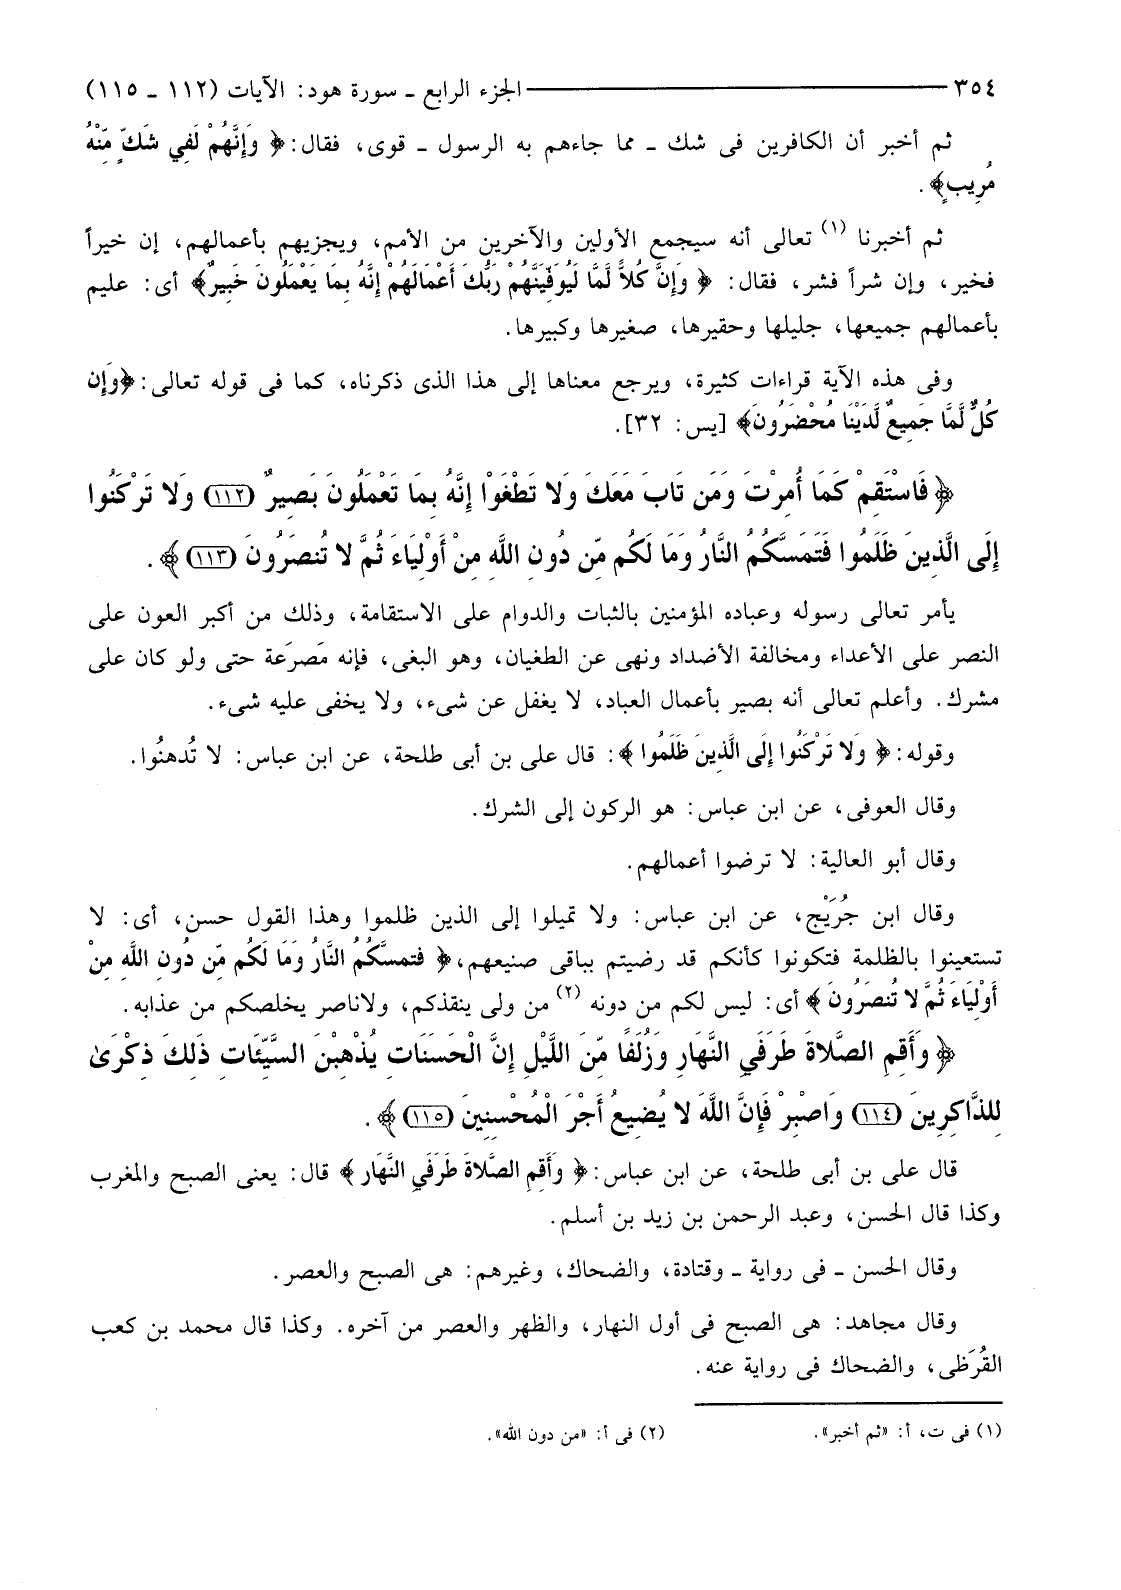 ٣٥٤ الجزء الرابع ـ سورة هود: الآيات (١١٢ ـ ١١٥)
ثم أخبر أن الكافرين فى شك ـ مما جاءهم به الرسول ـ قوى، فقال: ﴿ وَإِنَّهُمْ لَفِي شَكٍّ مِّنْهُ
مُرِيبٍ﴾ .
ثم أخبرنا (١) تعالى أنه سيجمع الأولين والآخرين من الأمم، ويجزيهم بأعمالهم، إن خيراً
فخير، وإن شراً فشر، فقال: ﴿ وَإِنَّ كُلاًّ لَّمَّا لَيُوَفِّيَنَّهُمْ رَبُّكَ أَعْمَالَهُمْ إِنَّهُ بِمَا يَعْمَلُونَ خَبِيرٌ﴾ أى: عليم
بأعمالهم جميعها، جليلها وحقيرها، صغيرها وكبيرها.
وفى هذه الآية قراءات كثيرة، ويرجع معناها إلى هذا الذى ذكرناه، كما فى قوله تعالى: ﴿وَإِن
كُلٌّ لَّمَّا جَمِيعٌ لَّدَيْنَا مُحْضَرُونَ﴾ [يس: ٣٢].
﴿ فَاسْتَقِمْ كَمَا أُمِرْتَ وَمَن تَابَ مَعَكَ وَلا تَطْغَوْا إِنَّهُ بِمَا تَعْمَلُونَ بَصِيرٌ (١١٢) وَلا تَرْكَنُوا
إِلَى الَّذِينَ ظَلَمُوا فَتَمَسَّكُمُ النَّارُ وَمَا لَكُم مِّن دُونِ اللَّهِ مِنْ أَوْلِيَاءَ ثُمَّ لا تُنصَرُونَ (١١٣) ﴾ .
يأمر تعالى رسوله وعباده المؤمنين بالثبات والدوام على الاستقامة، وذلك من أكبر العون على
النصر على الأعداء ومخالفة الأضداد ونهى عن الطغيان، وهو البغى، فإنه مَصرَعة حتى ولو كان على
مشرك. وأعلم تعالى أنه بصير بأعمال العباد، لا يغفل عن شىء، ولا يخفى عليه شىء.
وقوله: ﴿ وَلا تَرْكَنُوا إِلَى الَّذِينَ ظَلَمُوا ﴾: قال على بن أبى طلحة، عن ابن عباس: لا تُدهنُوا.
وقال العوفى، عن ابن عباس: هو الركون إلى الشرك.
وقال أبو العالية: لا ترضوا أعمالهم.
وقال ابن جُرَيْج، عن ابن عباس: ولا تميلوا إلى الذين ظلموا وهذا القول حسن، أى: لا
تستعينوا بالظلمة فتكونوا كأنكم قد رضيتم بباقى صنيعهم، ﴿ فتمسكُمُ النَّارُ وَمَا لَكُم مِّن دُونِ اللَّهِ مِنْ
أَوْلِيَاءَ ثُمَّ لا تُنصَرُونَ ﴾ أى: ليس لكم من دونه (٢) من ولى ينقذكم، ولاناصر يخلصكم من عذابه.
﴿ وَأَقِمِ الصَّلاةَ طَرَفَيِ النَّهَارِ وَزُلَفًا مِّنَ اللَّيْلِ إِنَّ الْحَسَنَاتِ يُذْهِبْنَ السَّيِّئَاتِ ذَلِكَ ذِكْرَىٰ
لِلذَّاكِرِينَ (١١٤) وَاصْبِرْ فَإِنَّ اللَّهَ لا يُضِيعُ أَجْرَ الْمُحْسِنِينَ (١١٥) ﴾ .
قال على بن أبى طلحة، عن ابن عباس: ﴿ وَأَقِمِ الصَّلاةَ طَرَفَيِ النَّهَارِ ﴾ قال: يعنى الصبح والمغرب
وكذا قال الحسن، وعبد الرحمن بن زيد بن أسلم.
وقال الحسن ـ فى رواية ـ وقتادة، والضحاك، وغيرهم: هى الصبح والعصر.
وقال مجاهد: هى الصبح فى أول النهار، والظهر والعصر من آخره. وكذا قال محمد بن كعب
القُرَظى، والضحاك فى رواية عنه.
(١) فى ت، أ: «ثم أخبر». (٢) فى أ: «من دون الله».